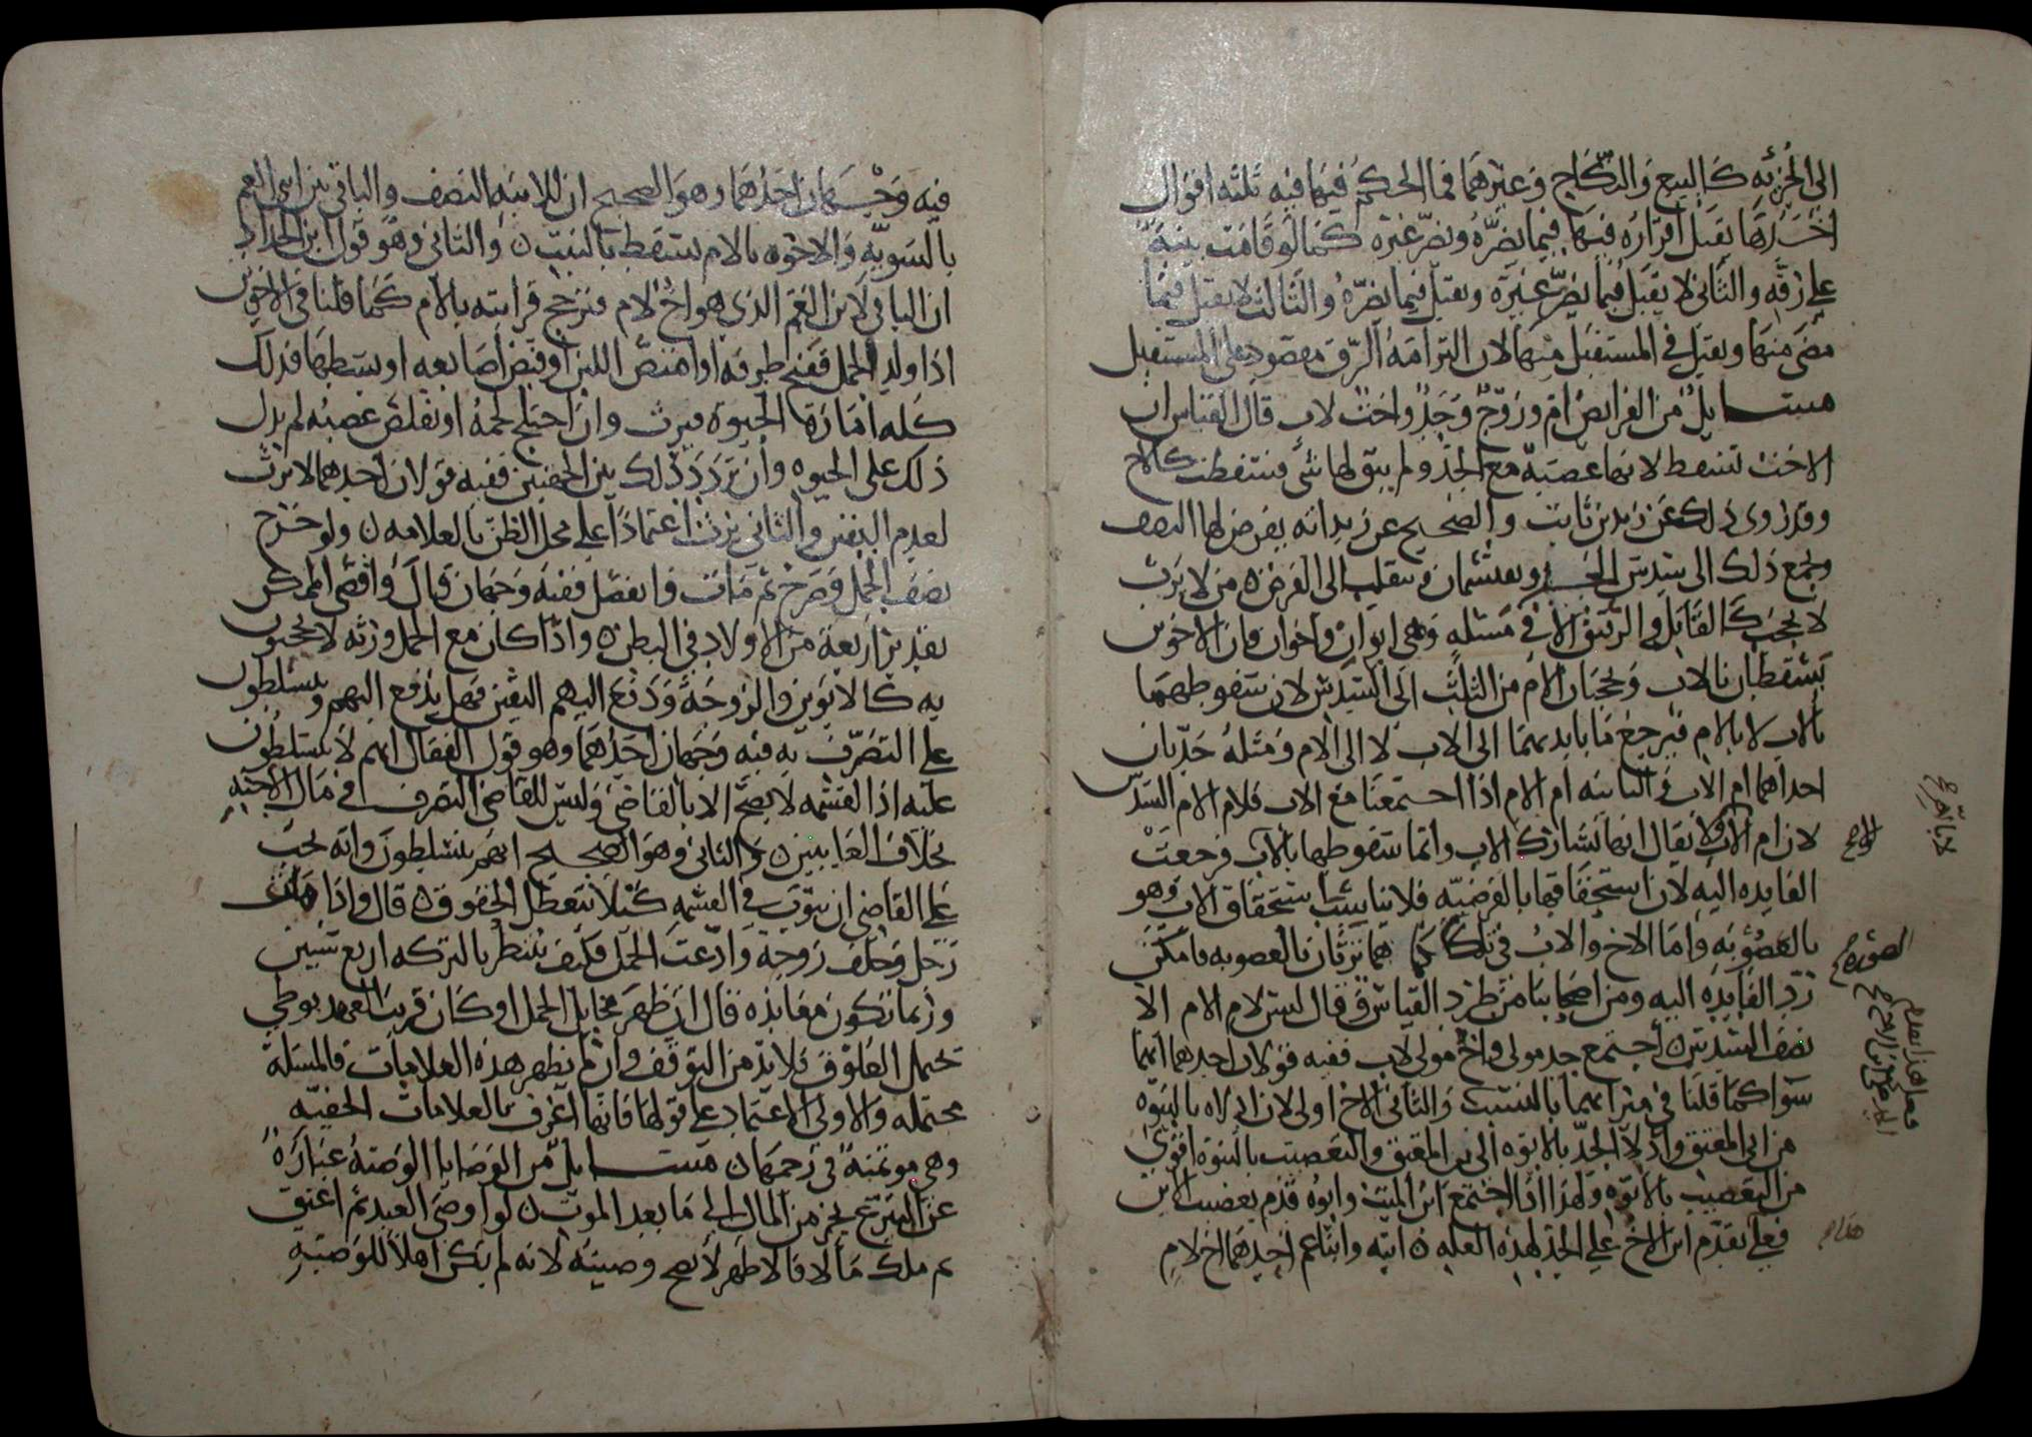 الى الحريه كالبيع والنكاح وغيرهما فما الحكم فيها فيه ثلثه اقوال
احدها يقبل اقراره فيها فيما يضره ويضر غيره كما لو قامت بينه
على رقه والثانى لا يقبل فيما يضر غيره ويقبل فيما يضره والثالث لا يقبل فيما
مضى منها ويقبل فى المستقبل منها لان التزامه الرق مقصور على المستقبل
مسايل من الفرايض ام وزوج وجد واخت لاب قال القياس ان
الاخت تسقط لانها عصبة مع الجد ولم يبق لها شى فسقطت كالاخ
وقد روى ذلك عن زيد بن ثابت والصحيح عن زيد انه يفرض لها النصف
ويجمع ذلك الى سدس الجد ويقتسمان فتنقلب الى الفرض ه من لا يرث
لا يحجب كالقاتل والرقيق الا فى مسئله وهى ابوان واخوان فان الاخوين
يسقطان بالاب ويحجبان الام من الثلث الى السدس لان سقوطهما
بالاب لا بالام فيرجع ما بايديهما الى الاب لا الى الام ومثله جدتان
احداهما ام الاب والثانيه ام الام اذا اجتمعتا مع الاب فلام الام السدس
لان ام الاب لا يقال انها تشارك الاب وانما سقوطها بالاب فرجعت
الفايده اليه لان استحقاقها بالفرضيه فلا يناسب استحقاق الاب وهو
بالعصوبه واما الاخ والاب فى تلك هما يرثان بالعصوبه فامكن
رد الفايده اليه ومن اصحابنا من طرد القياس فقال ليس لام الام الا
نصف السدس ه اجتمع جد مولى واخ مولى لاب ففيه قولان احدهما انهما
سوا كما قلنا فى ميراثهما بالنسب والثانى الاخ اولى لان ادلاه بالبنوه
من ابى المعتق وادلا الجد بالابوه الى المعتق والتعصيب بالبنوة اقوى
من التعصيب بالابوه ولهذا اذا اجتمع ابن الميت وابوه قدم تعصيب الابن
فعلى يقدم ابن الاخ على الجد لهذه العله ه ابنه وابنا عم احدهما اخ لام
الاخ
الصوره
هذا
فيه وجهان احدهما وهو الصحيح ان للابنه النصف والباقى بين ابنى العم
بالسويه والاخوه بالام تسقط بالبنت ه والثانى وهو قول ابن الحداد
ان الباقى لابن العم الذى هو اخ لام فترجح قرابته بالام كما قلنا فى الاخوين
اذا ولد الحمل ففتح طرفه او امتص اللبن او قبض اصابعه او بسطها فذلك
كله امارة الحيوة فيرث وان اختلج لحمه او تقلص عصبه لم يدل
ذلك على الحيوه وان تردد ذلك بين الجهتين ففيه قولان احدهما لا يرث
لعدم اليقين والثانى يرث اعتمادا على محل الظن بالعلامه ه ولو خرج
نصف الحمل وصرخ ثم مات وانفصل ففيه وجهان قال واقصى الممكن
تقدير اربعة من الاولاد فى البطن ه واذا كان مع الحمل ورثه لا يحجبون
به كالابوين والزوجة ودفع اليهم اليقين فهل يدفع اليهم ويتسلطون
على التصرف به فيه وجهان احدهما وهو قول القفال انهم لا يتسلطون
عليه اذ القسمه لا تصح الا بالقاضى وليس للقاضى التصرف فى مال الاجنه
بخلاف الغايبين ه والثانى وهو الصحيح انهم يتسلطون وانه يجب
على القاضى ان ينوب فى القسمه كيلا تتعطل الحقوق ه قال واذا مات
رجل وخلف زوجة وادعت الحمل فكيف ننتظر بالتركه اربع سنين
وربما تكون معانده قال ان ظهر مخايل الحمل او كان قريب العهد بوطى
تحتمل العلوق فلا بد من التوقف وان لم يظهر هذه العلامات فالمسئلة
محتمله والاولى الاعتماد على قولها فانها اعرف بالعلامات الخفيه
وهى موتمنة فى رحمها ه مسايل من الوصايا الوصية عبارة
عن التبرع بجز من المال الى ما بعد الموت ه لو اوصى العبد ثم اعتق
ثم ملك مالا فالاظهر لا يصح وصيته لانه لم يكن اهلا للوصية